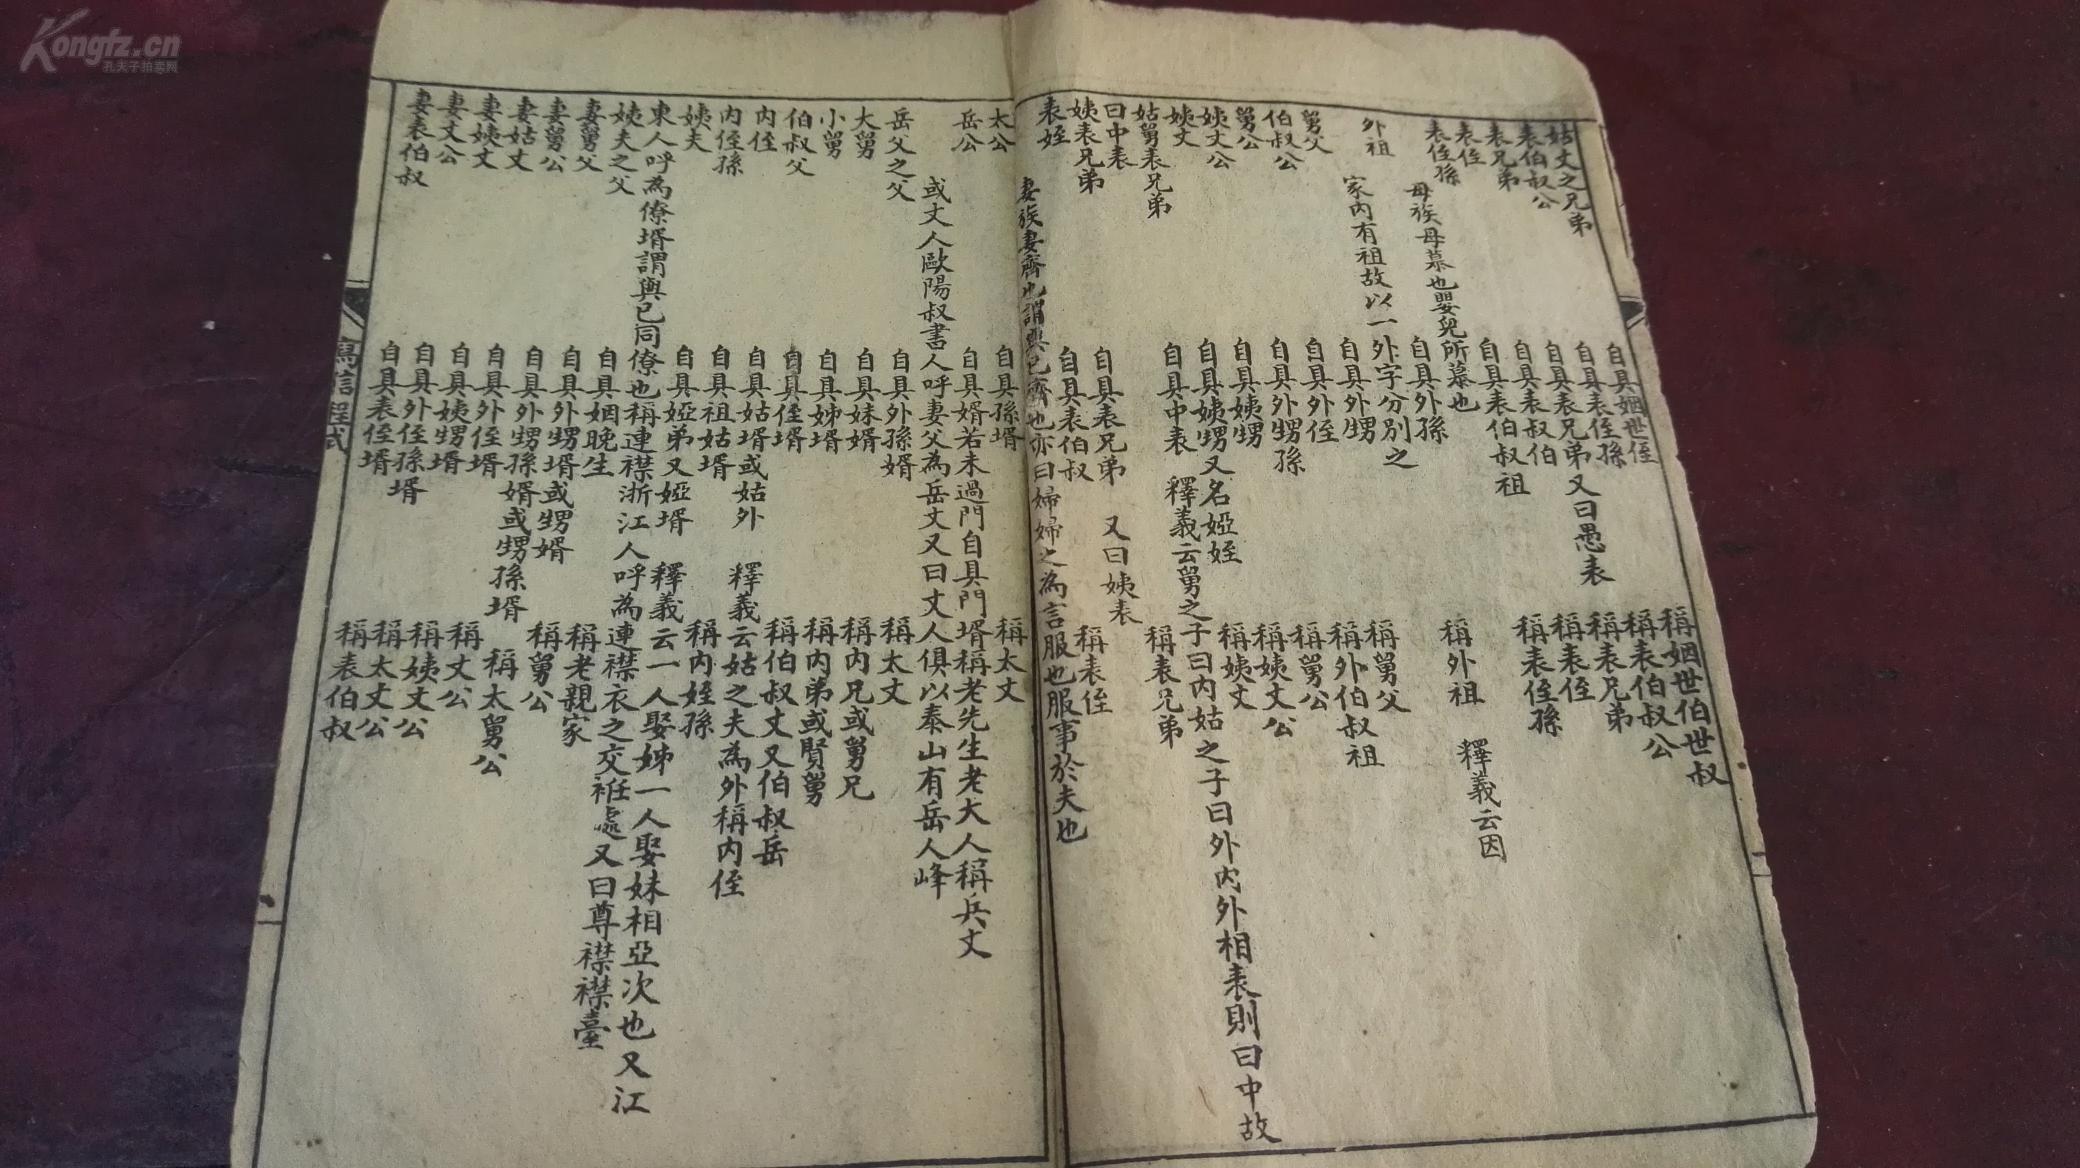 姑丈之兄弟 自具姻世侄 稱姻世伯世叔
表伯叔公 自具表侄孫 稱表伯叔公
表兄弟 自具表兄弟又曰愚表 稱表兄弟
表侄 自具表叔伯 稱表侄
表侄孫 自具表伯叔祖 稱表侄孫
母族母慕也嬰兒所慕也
外祖 自具外孫 稱外祖 釋義云因
家內有祖故以一外字分別之
舅父 自具外甥 稱舅父
伯叔公 自具外侄 稱外伯叔祖
舅公 自具外甥孫 稱舅公
姨丈公 自具姨甥 稱姨丈公
姨丈 自具姨甥又名婭姪 稱姨丈
姑舅表兄弟 自具中表 釋義云舅之子曰內姑之子曰外內外相表則曰中故
曰中表 稱表兄弟
姨表兄弟 自具表兄弟 又曰姨表
表姪 自具表伯叔 稱表侄
妻族妻齊也謂與己齊也亦曰婦婦之為言服也服事於夫也
太公 自具孫壻 稱太丈
岳公 自具婿若未過門自具門壻稱老先生老大人稱兵丈
或丈人歐陽叔書人呼妻父為岳丈又曰丈人俱以泰山有岳人峰
岳父之父 自具外孫婿 稱太丈
大舅 自具妹婿 稱內兄或舅兄
小舅 自具姊壻 稱內弟或賢舅
伯叔父 自具侄壻 稱伯叔丈又伯叔岳
內侄 自具姑壻或姑外 釋義云姑之夫為外稱內侄
內侄孫 自具祖姑壻 稱內姪孫
姨夫 自具婭弟又婭壻 釋義云一人娶姊一人娶妹相亞次也又江
東人呼為僚壻謂與己同僚也稱連襟浙江人呼為連襟衣之交袵處又曰尊襟襟臺
姨夫之父 自具姻晚生 稱老親家
妻舅父 自具外甥壻或甥婿 稱舅公
妻舅公 自具外甥孫婿或甥孫壻 稱太舅公
妻姑丈 自具外侄壻 稱丈公
妻姨丈 自具姨甥壻 稱姨丈公
妻丈公 自具外侄孫壻 稱太丈公
妻表伯叔 自具表侄壻 稱表伯叔
寫信程式
Kongfz.cn
孔夫子拍卖网